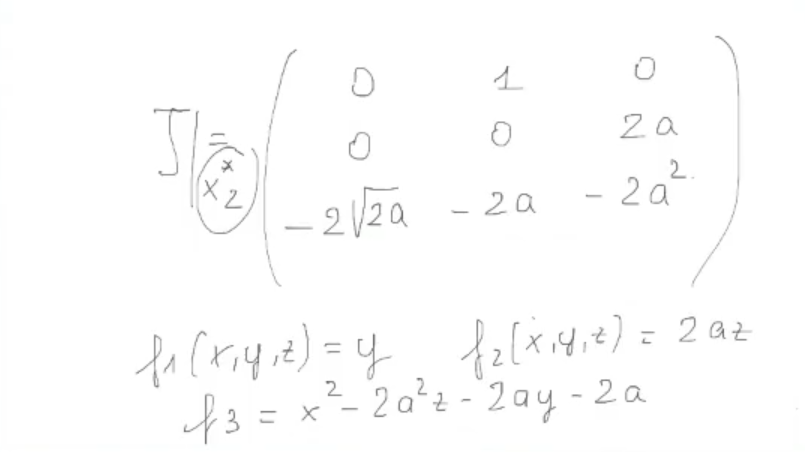 J|x₂* = ( 0 1 0
0 0 2a
-2√2a -2a -2a² )
f₁(x,y,z) = y f₂(x,y,z) = 2az
f₃ = x² - 2a²z - 2ay - 2a